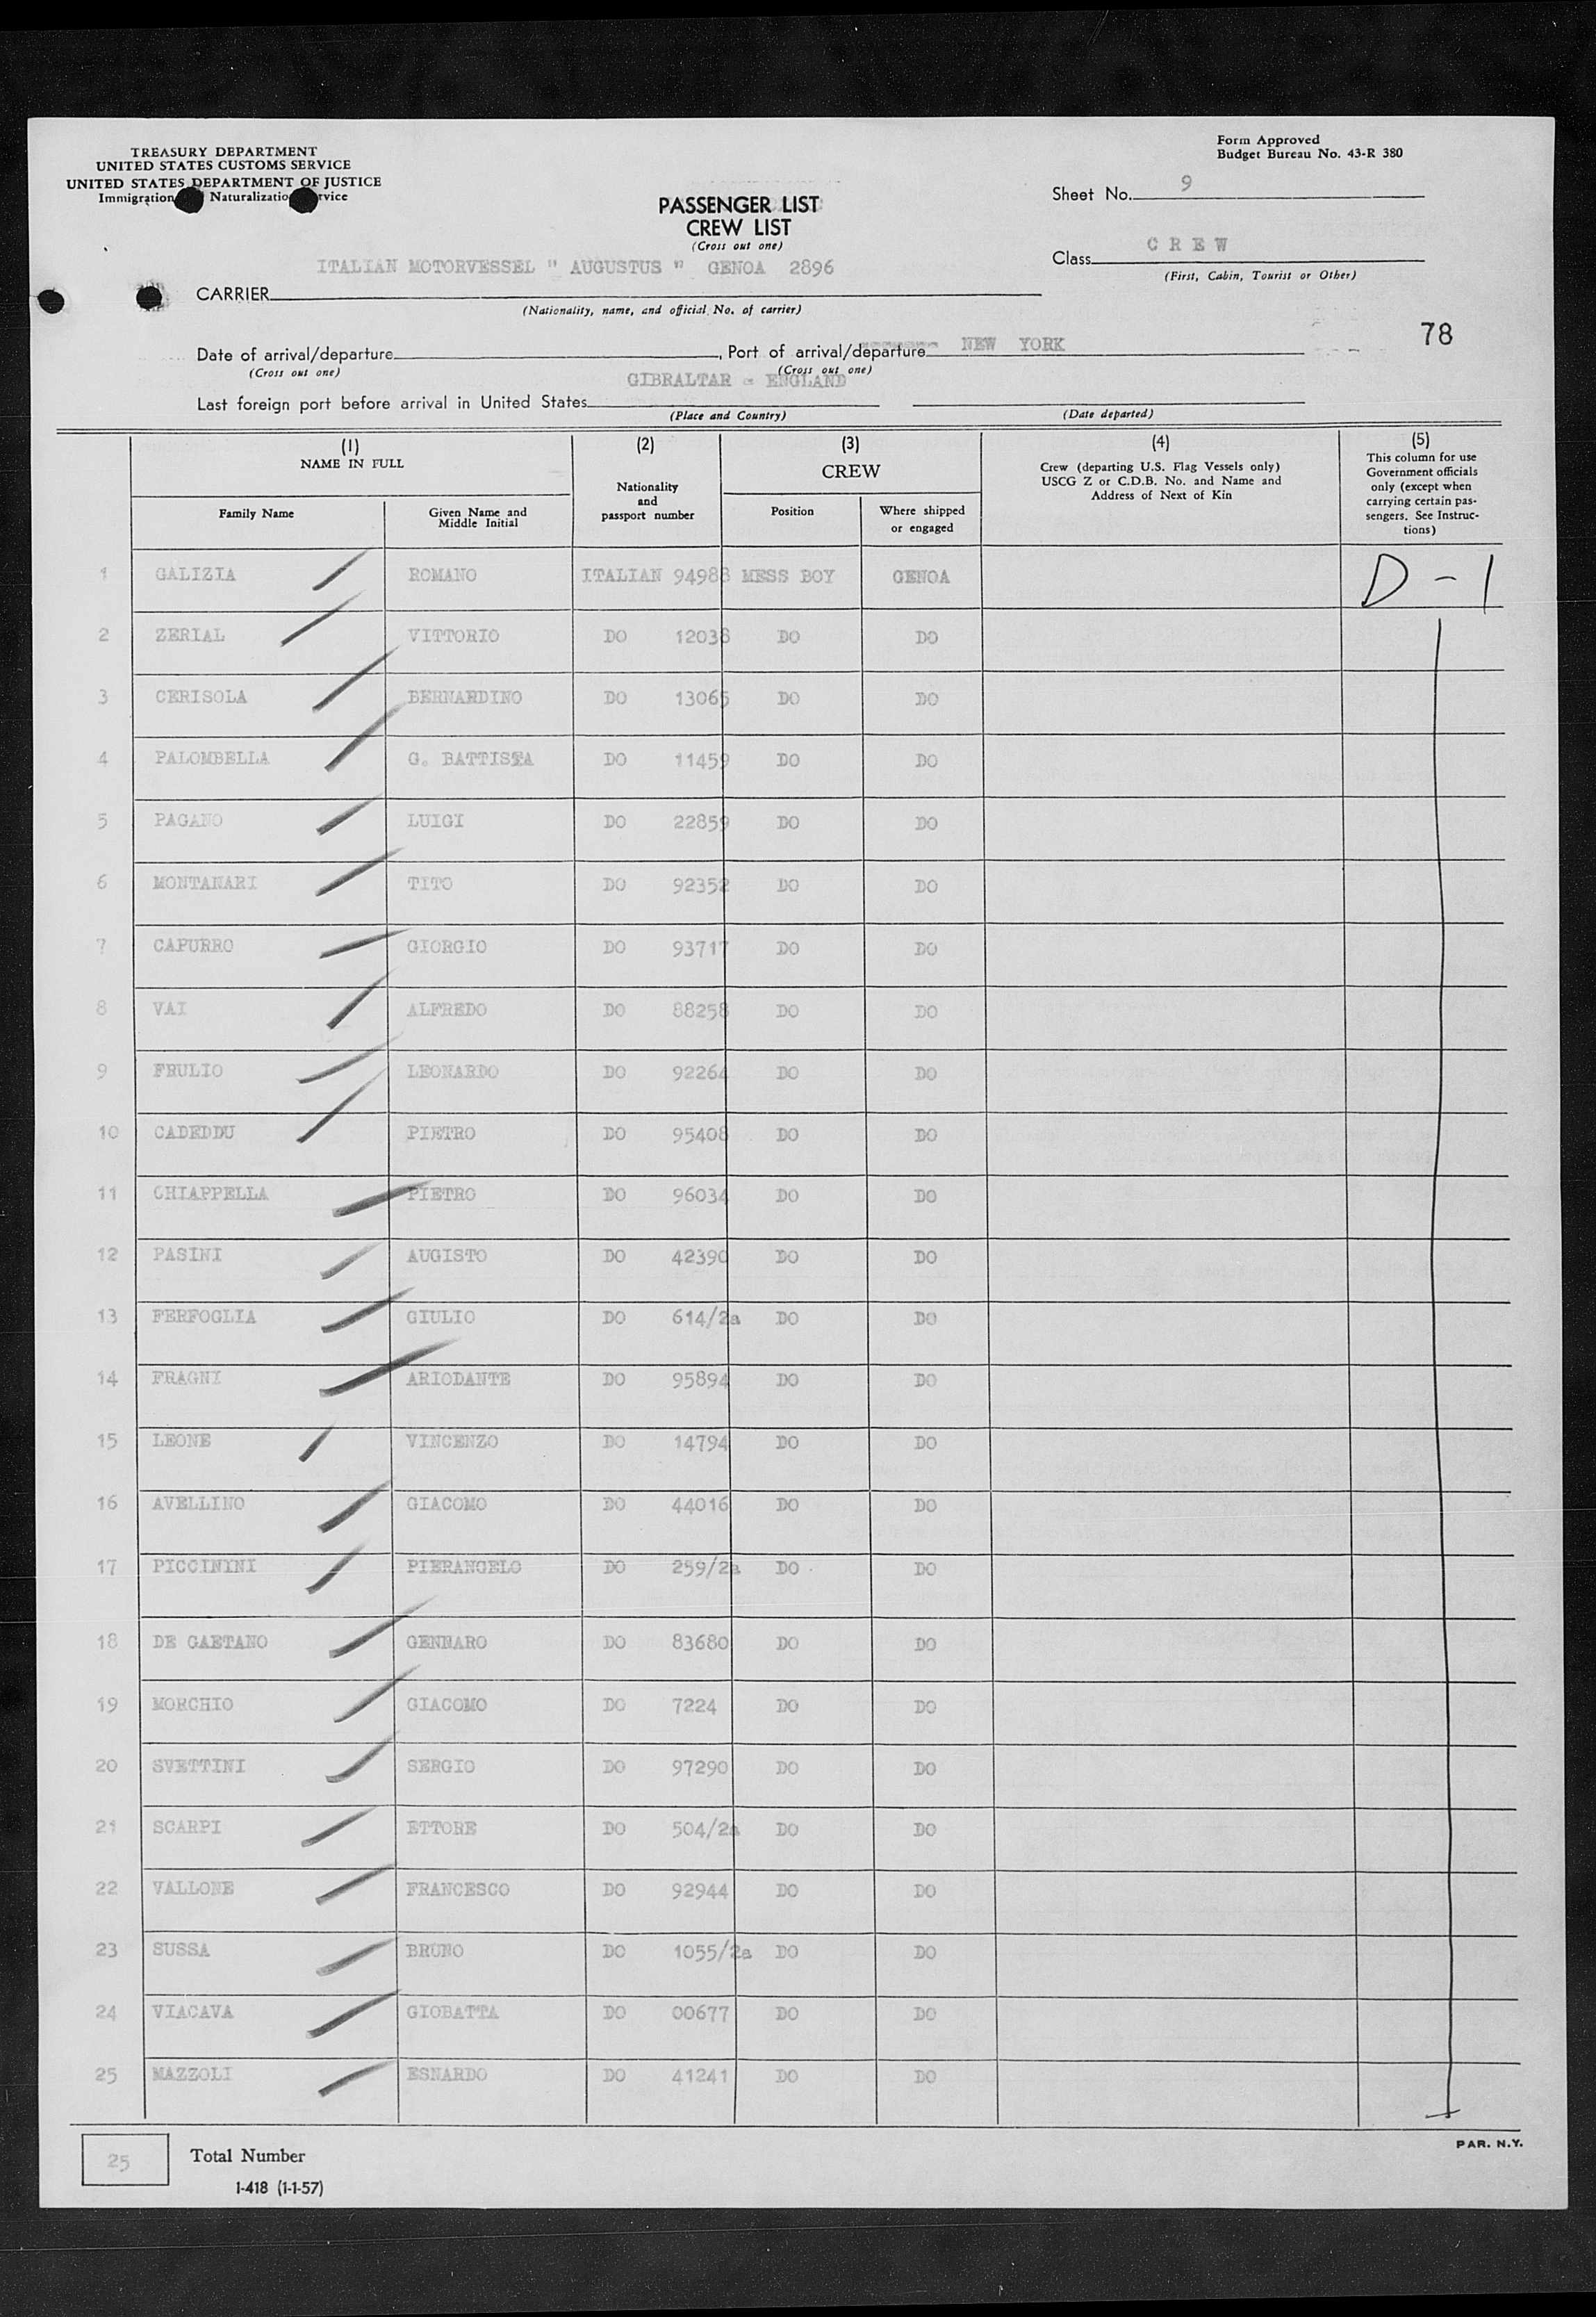 TREASURY DEPARTMENT
UNITED STATES CUSTOMS SERVICE
UNITED STATES DEPARTMENT OF JUSTICE
Immigration Naturalization Service
Form Approved
Budget Bureau No. 43-R 380
PASSENGER LIST
CREW LIST
(Cross out one)
Sheet No. 9
Class CREW
(First, Cabin, Tourist or Other)
ITALIAN MOTORVESSEL " AUGUSTUS " GENOA 2896
CARRIER
(Nationality, name, and official No. of carrier)
78
Date of arrival/departure , Port of arrival/departure NEW YORK
(Cross out one) (Cross out one)
GIBRALTAR - ENGLAND
Last foreign port before arrival in United States
(Place and Country) (Date departed)
(1) NAME IN FULL
Family Name
Given Name and Middle Initial
(2)
Nationality and passport number
(3)
CREW
Position
Where shipped or engaged
(4)
Crew (departing U.S. Flag Vessels only)
USCG Z or C.D.B. No. and Name and
Address of Next of Kin
(5)
This column for use
Government officials
only (except when
carrying certain pas-
sengers. See Instruc-
tions)
1 GALIZIA ROMANO ITALIAN 94988 MESS BOY GENOA D-1
2 ZERIAL VITTORIO DO 12038 DO DO
3 CERISOLA BERNARDINO DO 13065 DO DO
4 PALOMBELLA G. BATTISTA DO 11459 DO DO
5 PAGANO LUIGI DO 22859 DO DO
6 MONTANARI TITO DO 92352 DO DO
7 CAPURRO GIORGIO DO 93717 DO DO
8 VAI ALFREDO DO 88258 DO DO
9 FRULIO LEONARDO DO 92264 DO DO
10 CADEDDU PIETRO DO 95408 DO DO
11 CHIAPPELLA PIETRO DO 96034 DO DO
12 PASINI AUGISTO DO 42390 DO DO
13 FERFOGLIA GIULIO DO 614/2a DO DO
14 FRAGNI ARIODANTE DO 95894 DO DO
15 LEONE VINCENZO DO 14794 DO DO
16 AVELLINO GIACOMO DO 44016 DO DO
17 PICCININI PIERANGELO DO 259/2a DO DO
18 DE GAETANO GENNARO DO 83680 DO DO
19 MORCHIO GIACOMO DO 7224 DO DO
20 SVETTINI SERGIO DO 97290 DO DO
21 SCARPI ETTORE DO 504/2a DO DO
22 VALLONE FRANCESCO DO 92944 DO DO
23 SUSSA BRUNO DO 1055/2a DO DO
24 VIACAVA GIOBATTA DO 00677 DO DO
25 MAZZOLI ESNARDO DO 41241 DO DO
25 Total Number
PAR. N.Y.
I-418 (1-1-57)